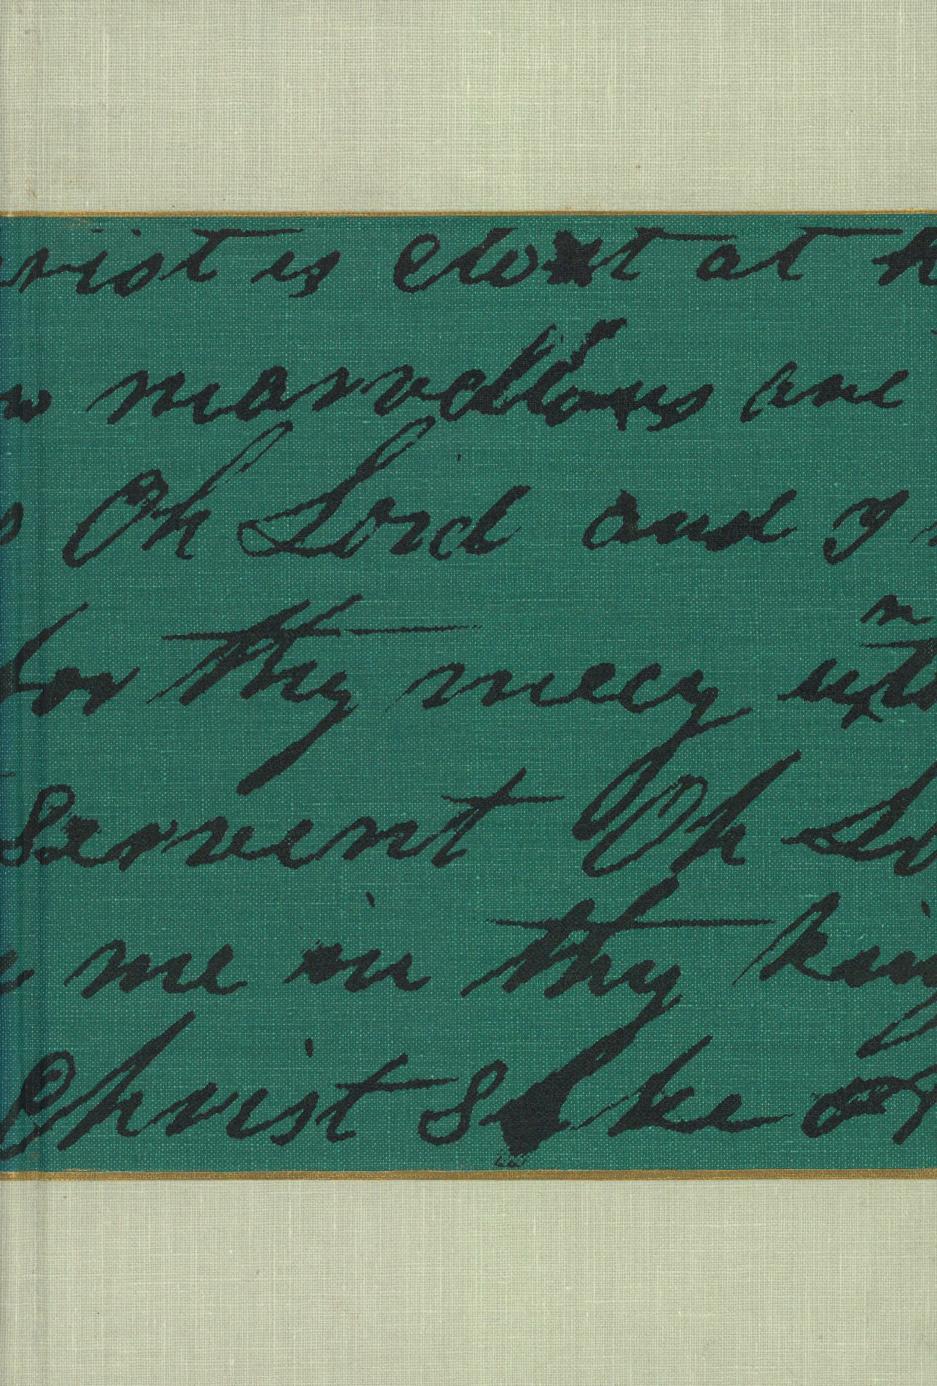 rist is clost at h
w marvellous are
s Oh Lord and I
for thy mecy uxto
n
Servent Oh Lo
me in thy king
Christ Sake of